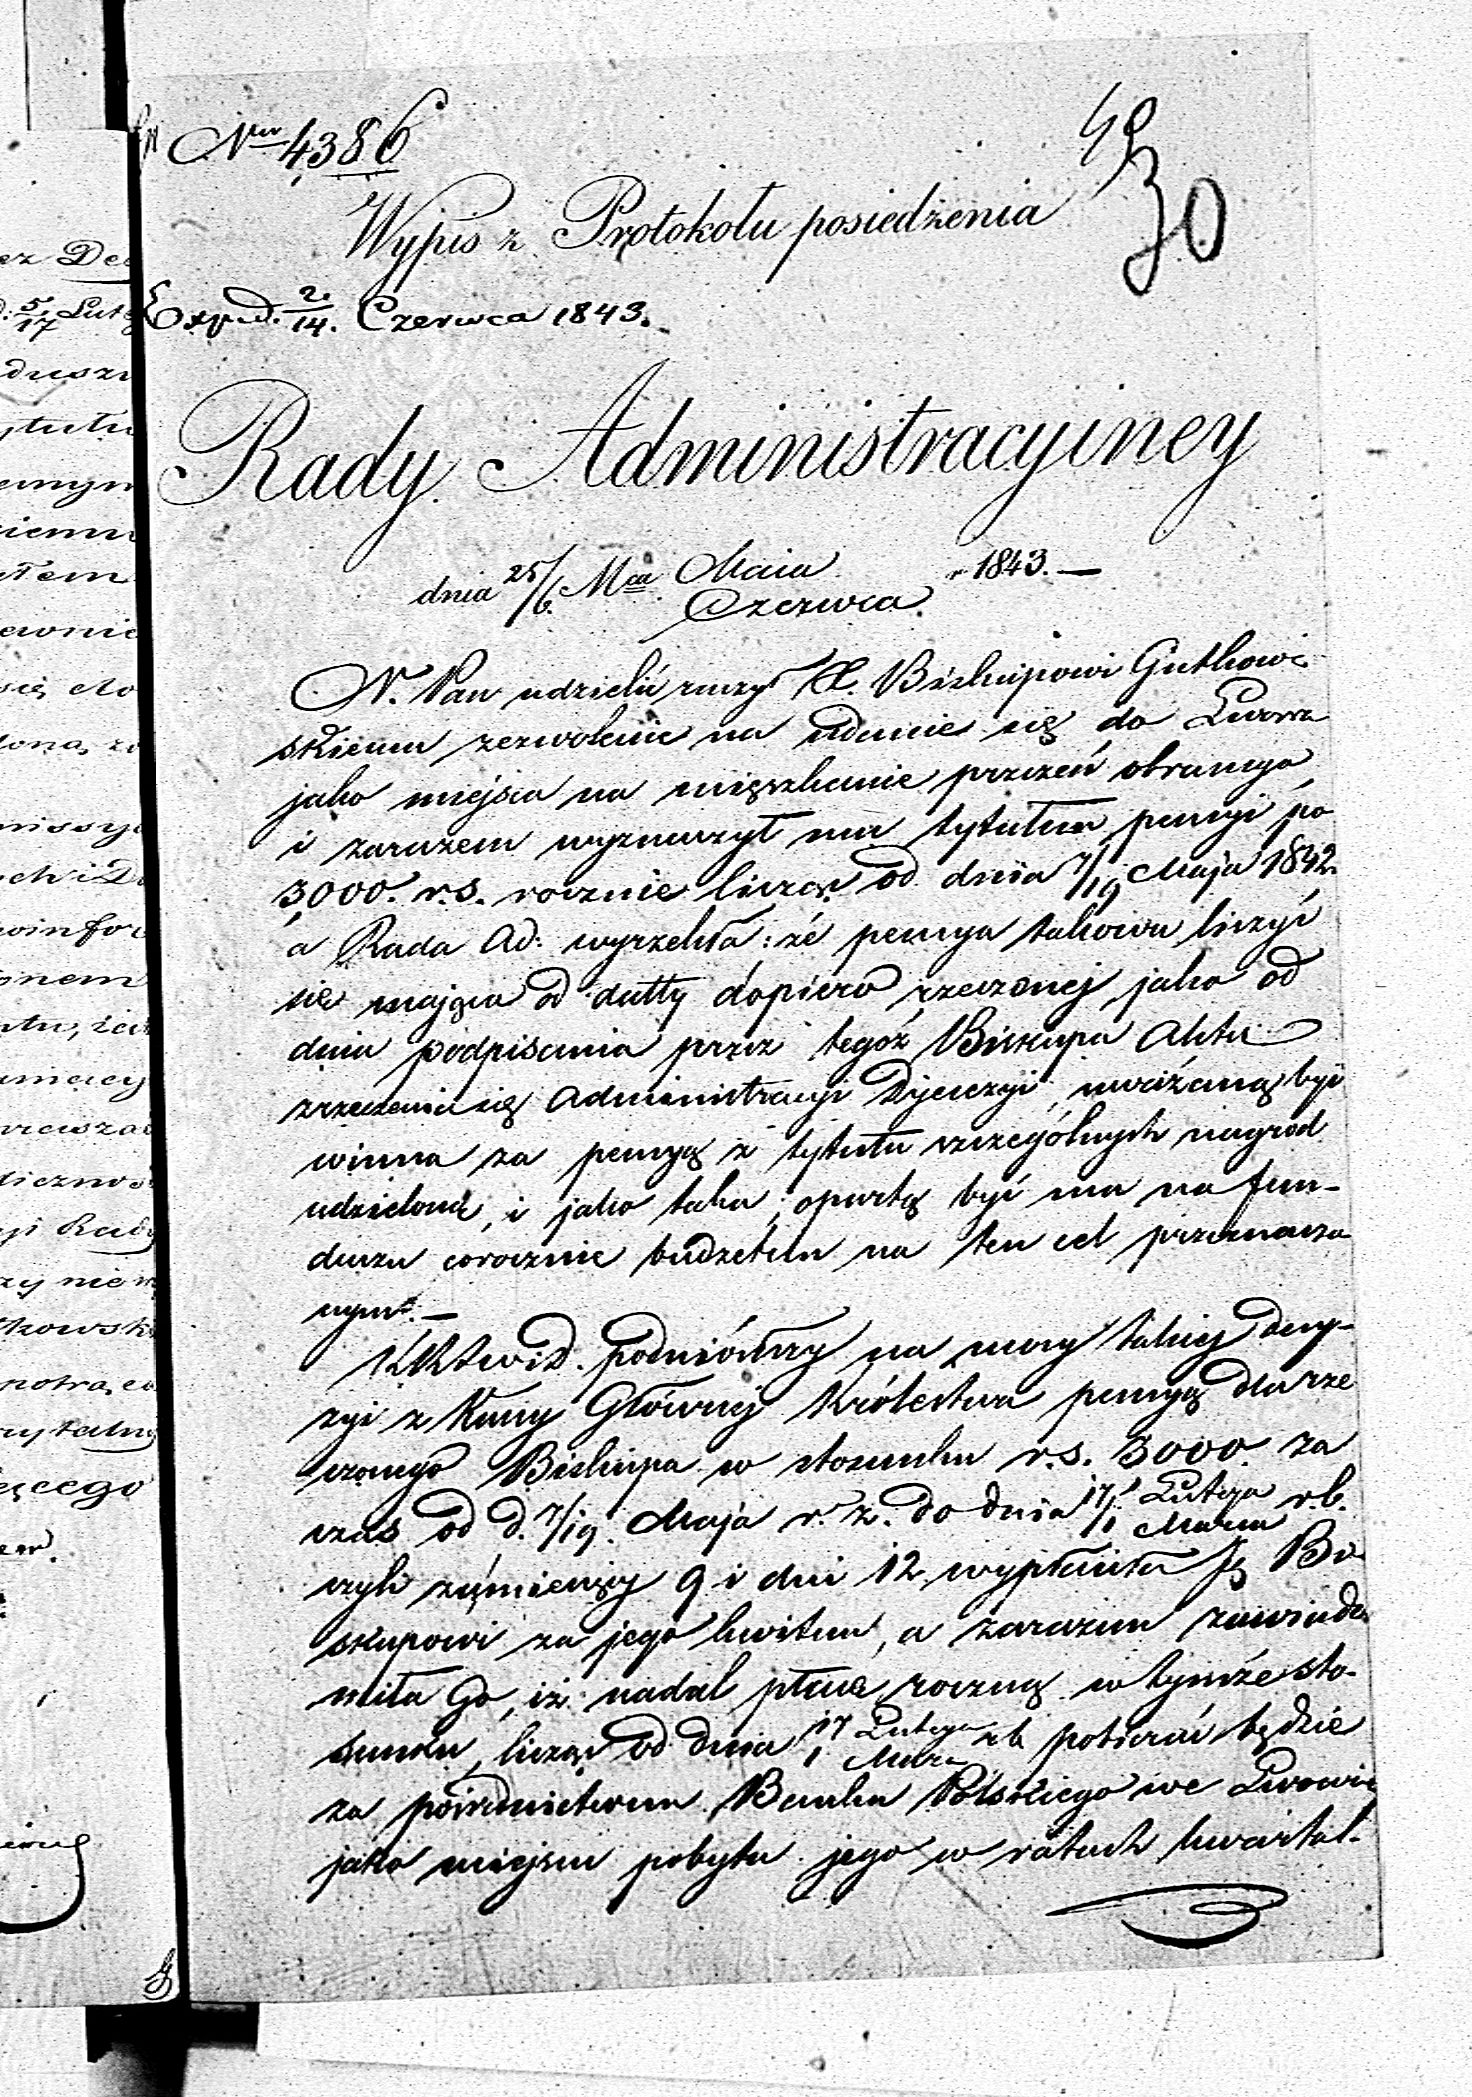 Nro 4386
49
30
Wypis z Protokołu posiedzenia
Exped. 2/14. Czerwca 1843.
Rady Administracyiney
dnia 25/6. Mca Maia Czerwca r 1843. —
N. Pan udzielić raczył X. Biskupowi Gutkow-
skiemu zezwolenie na udanie się do Lwowa
jako miejsca na mięszkanie przezeń obranego
i zarazem wyznaczył mu tytułem pensyi po
3000. r.s. rocznie licząc od dnia 7/19 Maja 1842.
a Rada Ad: wyrzekła: że pensya takowa liczyć
się mająca od datty dopiero rzeczonej, jako od
dnia podpisania przez tegoż Biskupa Aktu
zrzeczenia się Administracyi Dyecezyi, uważaną być
winna za pensyą z tytułu szczególnych nagród
udzieloną, i jako taka, opartą być ma na fun-
duszu corocznie budżetem na ten cel przeznaczo
nym. —
KRPiS. podniósłszy na mocy takiej decy-
zyi z Kassy Głównej Królestwa pensyą dla rze
czonego Biskupa w stosunku r.s. 3000. za
czas od d. 7/19. Maja r. z. do dnia 17/1 Lutego Marca r.b.
czyli za miesięcy 9 i dni 12, wypłaciła ją Bi-
skupowi za jego kwitem, a zarazem zawiado
miła Go, iż nadal płacę roczną w tymże sto-
sunku, licząc od dnia 17 Lutego 1 Marca r.b. pobierać będzie
za pośrednictwem Banku Polskiego we Lwowie
jako miejscu pobytu jego w ratach kwartal-